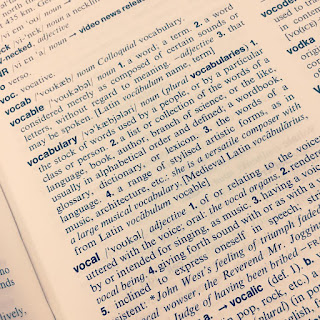 435 km. Ger
→ video news release
-necked, adjective
VR
verso.
voc. vocative.
vocab /ˈvoʊkæb/ noun Colloquial vocabulary.
vocable /ˈvoʊkəbəl/ noun 1. a word; a term. 2. a word
considered merely as composed of certain sounds or
letters, without regard to meaning. –adjective 3. that
may be spoken. [Latin vocābulum name, term]
vocabulary noun (plural vocabularies) 1.
the stock of words used by a people, or by a particular
class or person. 2. a list or collection of the words of a
language, book, author, branch of science, or the like,
usually in alphabetical order and defined; a wordbook,
glossary, dictionary, or lexicon. 3. the words of a
language. 4. a range of stylised artistic forms, as in
music, architecture, etc.: she is a versatile composer with
a large musical vocabulary. [Medieval Latin vocābulārius,
from Latin vocābulum vocable]
vocal /ˈvoʊkəl/ adjective 1. of or relating to the voice;
uttered with the voice; oral: the vocal organs. 2. rendered
by or intended for singing, as music. 3. having a voice
4. giving forth sound with or as with a voice.
5. inclined to express oneself in speech;
insistent: *John West's feeling of triumph faded
vocal wowser, the Reverend Mr. Joggin
accused Judge of having been bribed –FR
a. → vocalic (def. 1). b.
in pop, rock, etc.) a
plural) (in po
vocoder
used to
vodka
origin